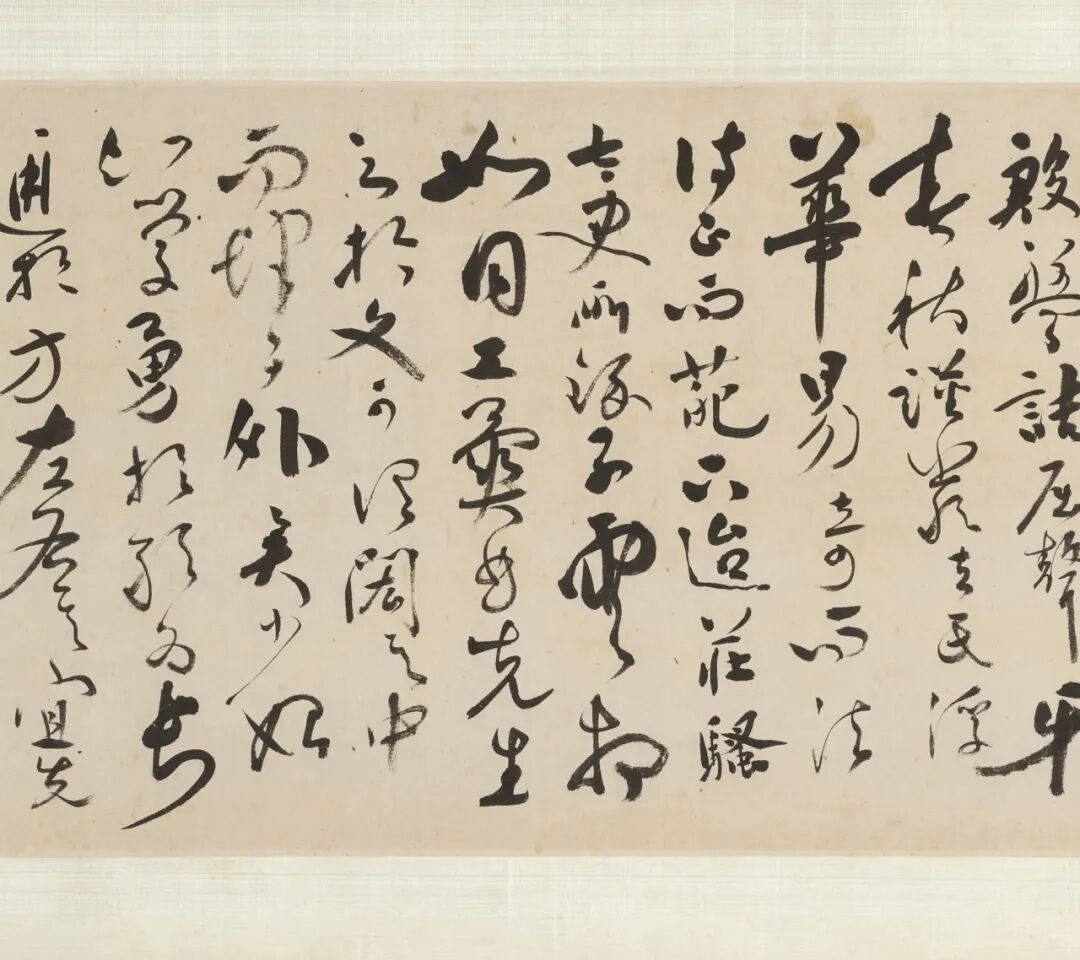 殷盤詰屈聱牙
春秋謹嚴左氏浮
華易奇而法
詩正而葩下迨莊騷
太史所錄子雲相
如同工異曲先生
之於文可謂閎其中
而肆其外矣少始
知學勇於敢為長
通於方左右具宜先